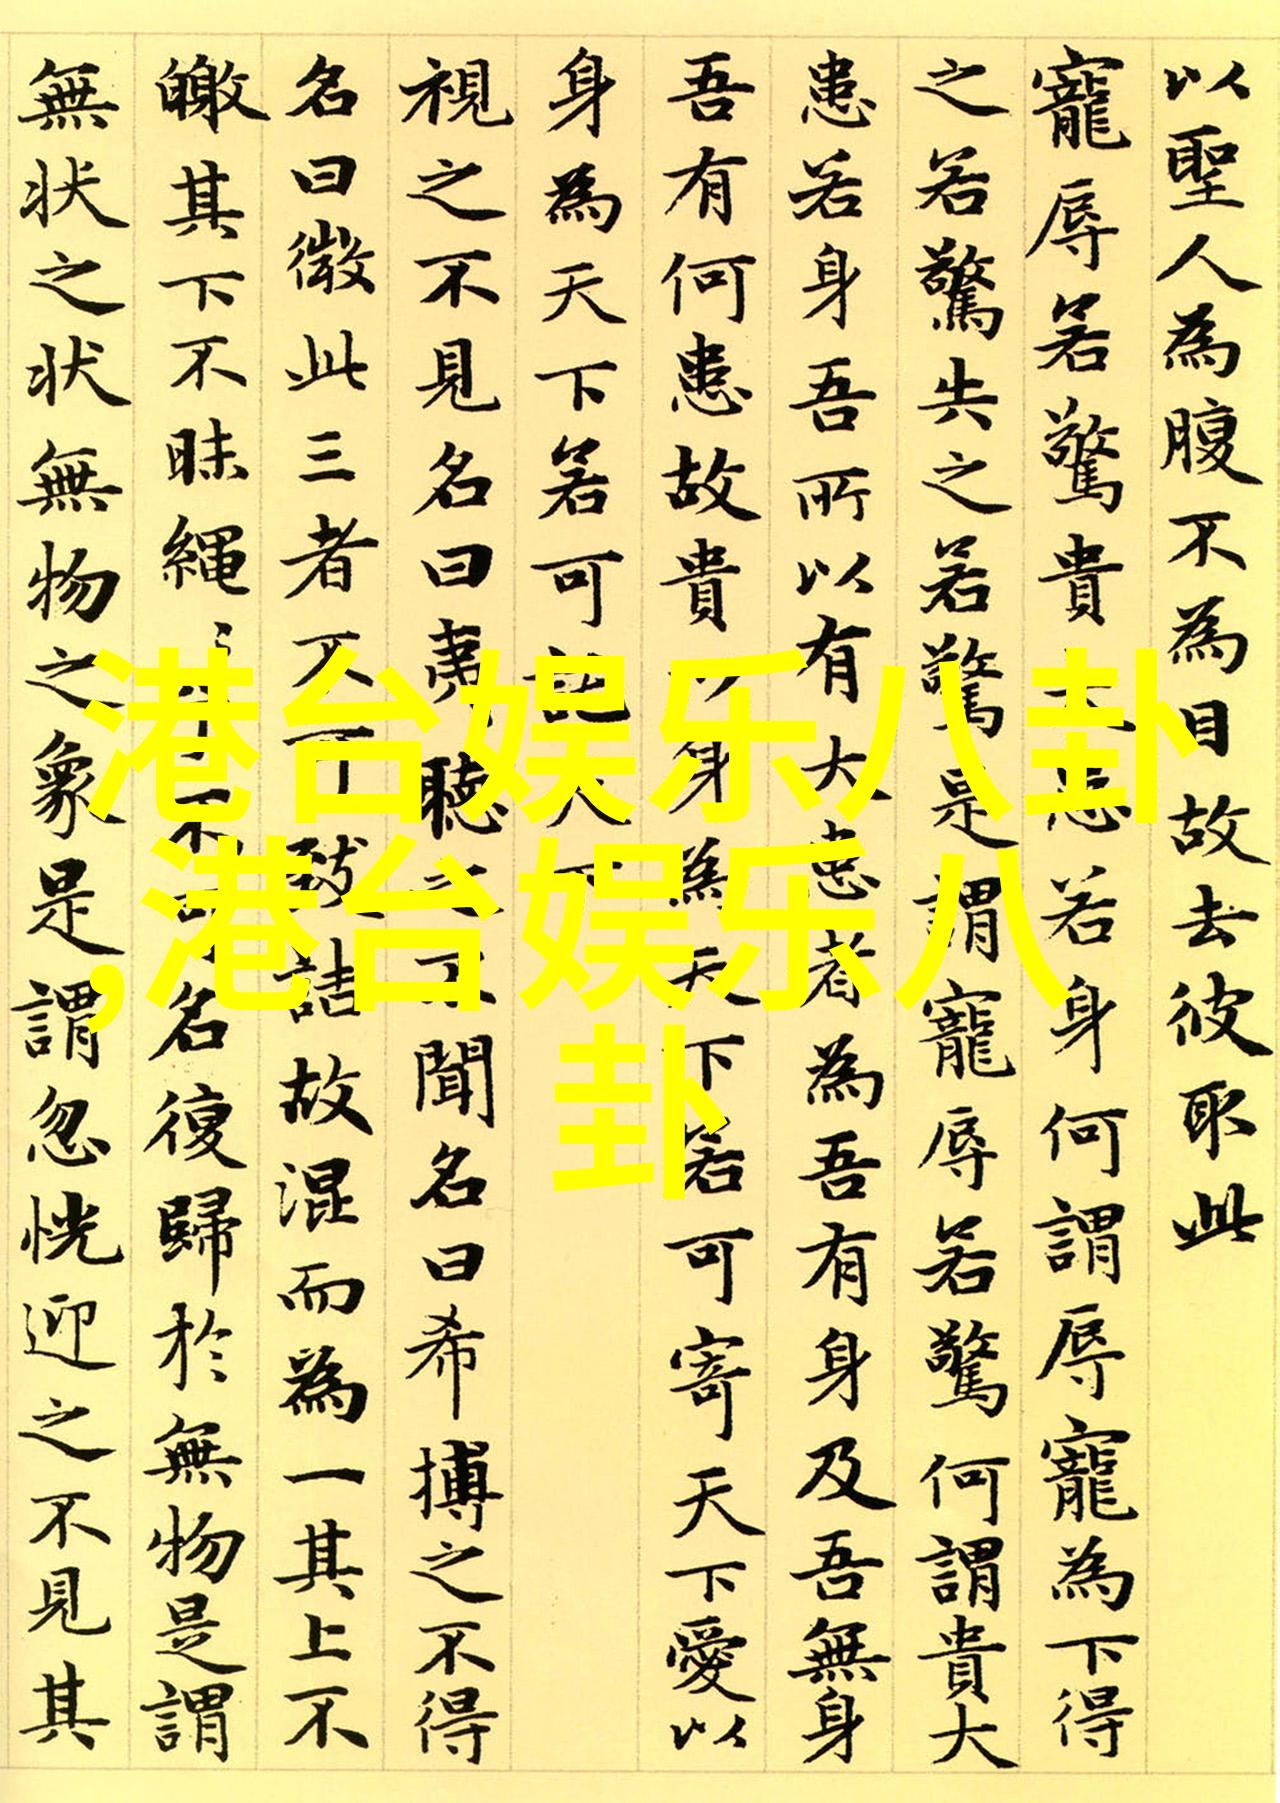 以聖人為腹不為目故去彼取此
寵辱若驚貴大患若身何謂辱寵為下得
之若驚失之若驚是謂寵辱若驚何謂貴大
患若身吾所以有大患者為吾有身及吾無身
吾有何患故貴以身為天下若可寄天下愛以
身為天下若可託天下
視之不見名曰夷聽之不聞名曰希搏之不得
名曰微此三者不可致詰故混而為一其上不
皦其下不昧繩不可名復歸於無物是謂
無狀之狀無物之象是謂忽恍迎之不見其
港台娱乐八卦
,港台娱乐八
卦